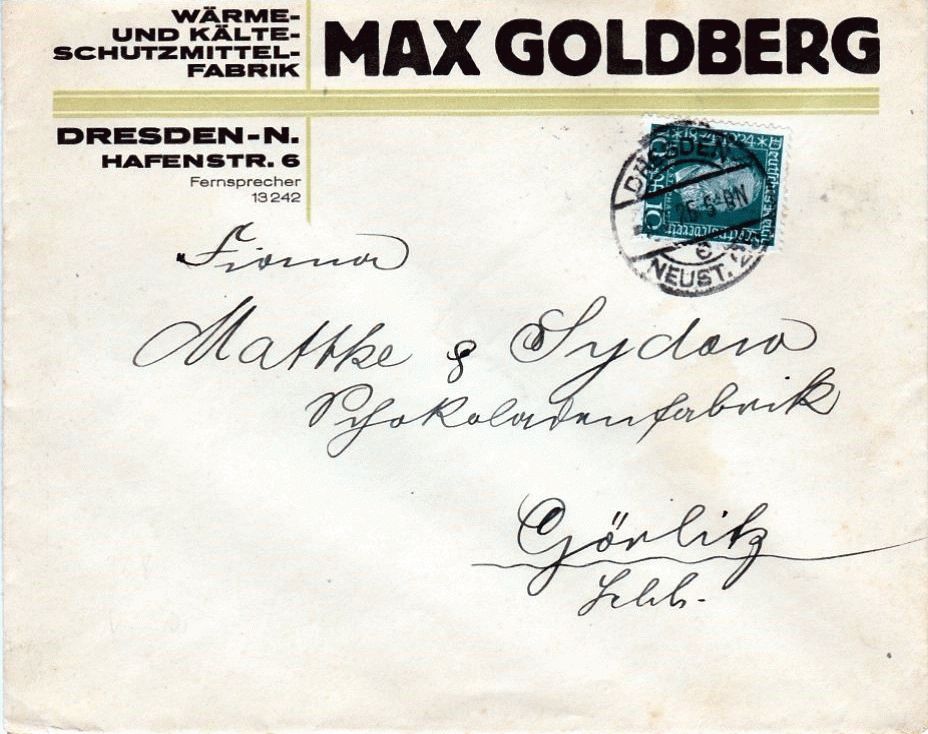 WÄRME-
UND KÄLTE-
SCHUTZMITTEL-
FABRIK
MAX GOLDBERG
DRESDEN-N.
HAFENSTR. 6
Fernsprecher
13242
DRESDEN
NEUST.
10
Firma
Mattke & Sydow
Schokoladenfabrik
Görlitz
Schl.